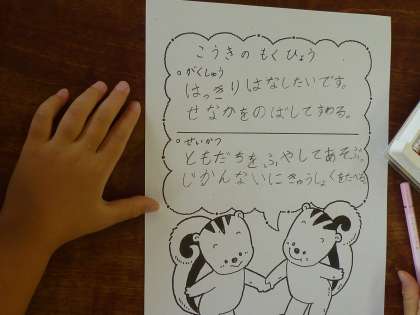 こうきの もくひょう
○がくしゅう
はっきりはなしたいです。
せなかをのばしてすわる。
○せいかつ
ともだちをふやしてあそぶ。
じかんないにきゅうしょくをたべる。